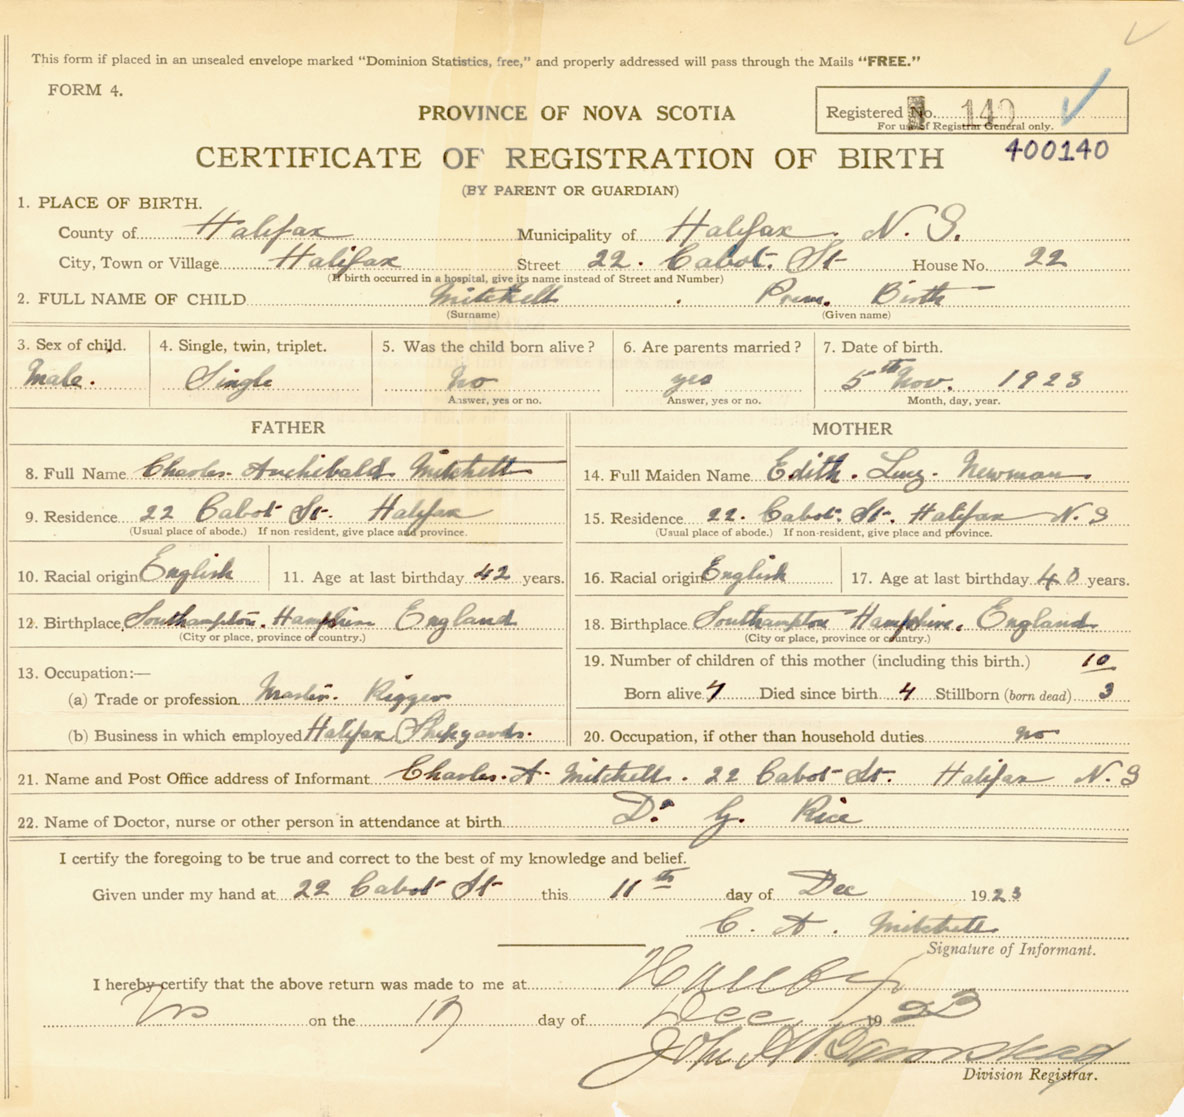 This form if placed in an unsealed envelope marked "Dominion Statistics, free," and properly addressed will pass through the Mails "FREE."
FORM 4.
PROVINCE OF NOVA SCOTIA
Registered No. 140
For use of Registrar General only.
CERTIFICATE OF REGISTRATION OF BIRTH 400140
(BY PARENT OR GUARDIAN)
1. PLACE OF BIRTH.
County of Halifax Municipality of Halifax. N. S.
City, Town or Village Halifax Street 22. Cabot. St House No. 22
(If birth occurred in a hospital, give its name instead of Street and Number)
2. FULL NAME OF CHILD Mitchell . Prem. Birth
(Surname) (Given name)
3. Sex of child. 4. Single, twin, triplet. 5. Was the child born alive? 6. Are parents married? 7. Date of birth.
Male. Single no yes 5th Nov. 1923
Answer, yes or no. Answer, yes or no. Month, day, year.
FATHER MOTHER
8. Full Name Charles. Archibald Mitchell 14. Full Maiden Name Edith. Lucy. Newman
9. Residence 22 Cabot St. Halifax 15. Residence 22. Cabot. St. Halifax N. S
(Usual place of abode.) If non-resident, give place and province. (Usual place of abode.) If non-resident, give place and province.
10. Racial origin English 11. Age at last birthday 42 years. 16. Racial origin English 17. Age at last birthday 40 years.
12. Birthplace Southampton. Hampshire England 18. Birthplace Southampton Hampshire. England
(City or place, province or country.) (City or place, province or country.)
19. Number of children of this mother (including this birth.) 10
13. Occupation:—
(a) Trade or profession Master. Rigger Born alive 7 Died since birth 4 Stillborn (born dead) 3
(b) Business in which employed Halifax Shipyards. 20. Occupation, if other than household duties no
21. Name and Post Office address of Informant Charles. A. Mitchell. 22 Cabot St. Halifax N. S
22. Name of Doctor, nurse or other person in attendance at birth Dr. G. Rice
I certify the foregoing to be true and correct to the best of my knowledge and belief.
Given under my hand at 22 Cabot St this 11th day of Dec 1923
C. A. Mitchell
Signature of Informant.
I hereby certify that the above return was made to me at Halifax
NS on the 17 day of Dec 1923
John
Division Registrar.